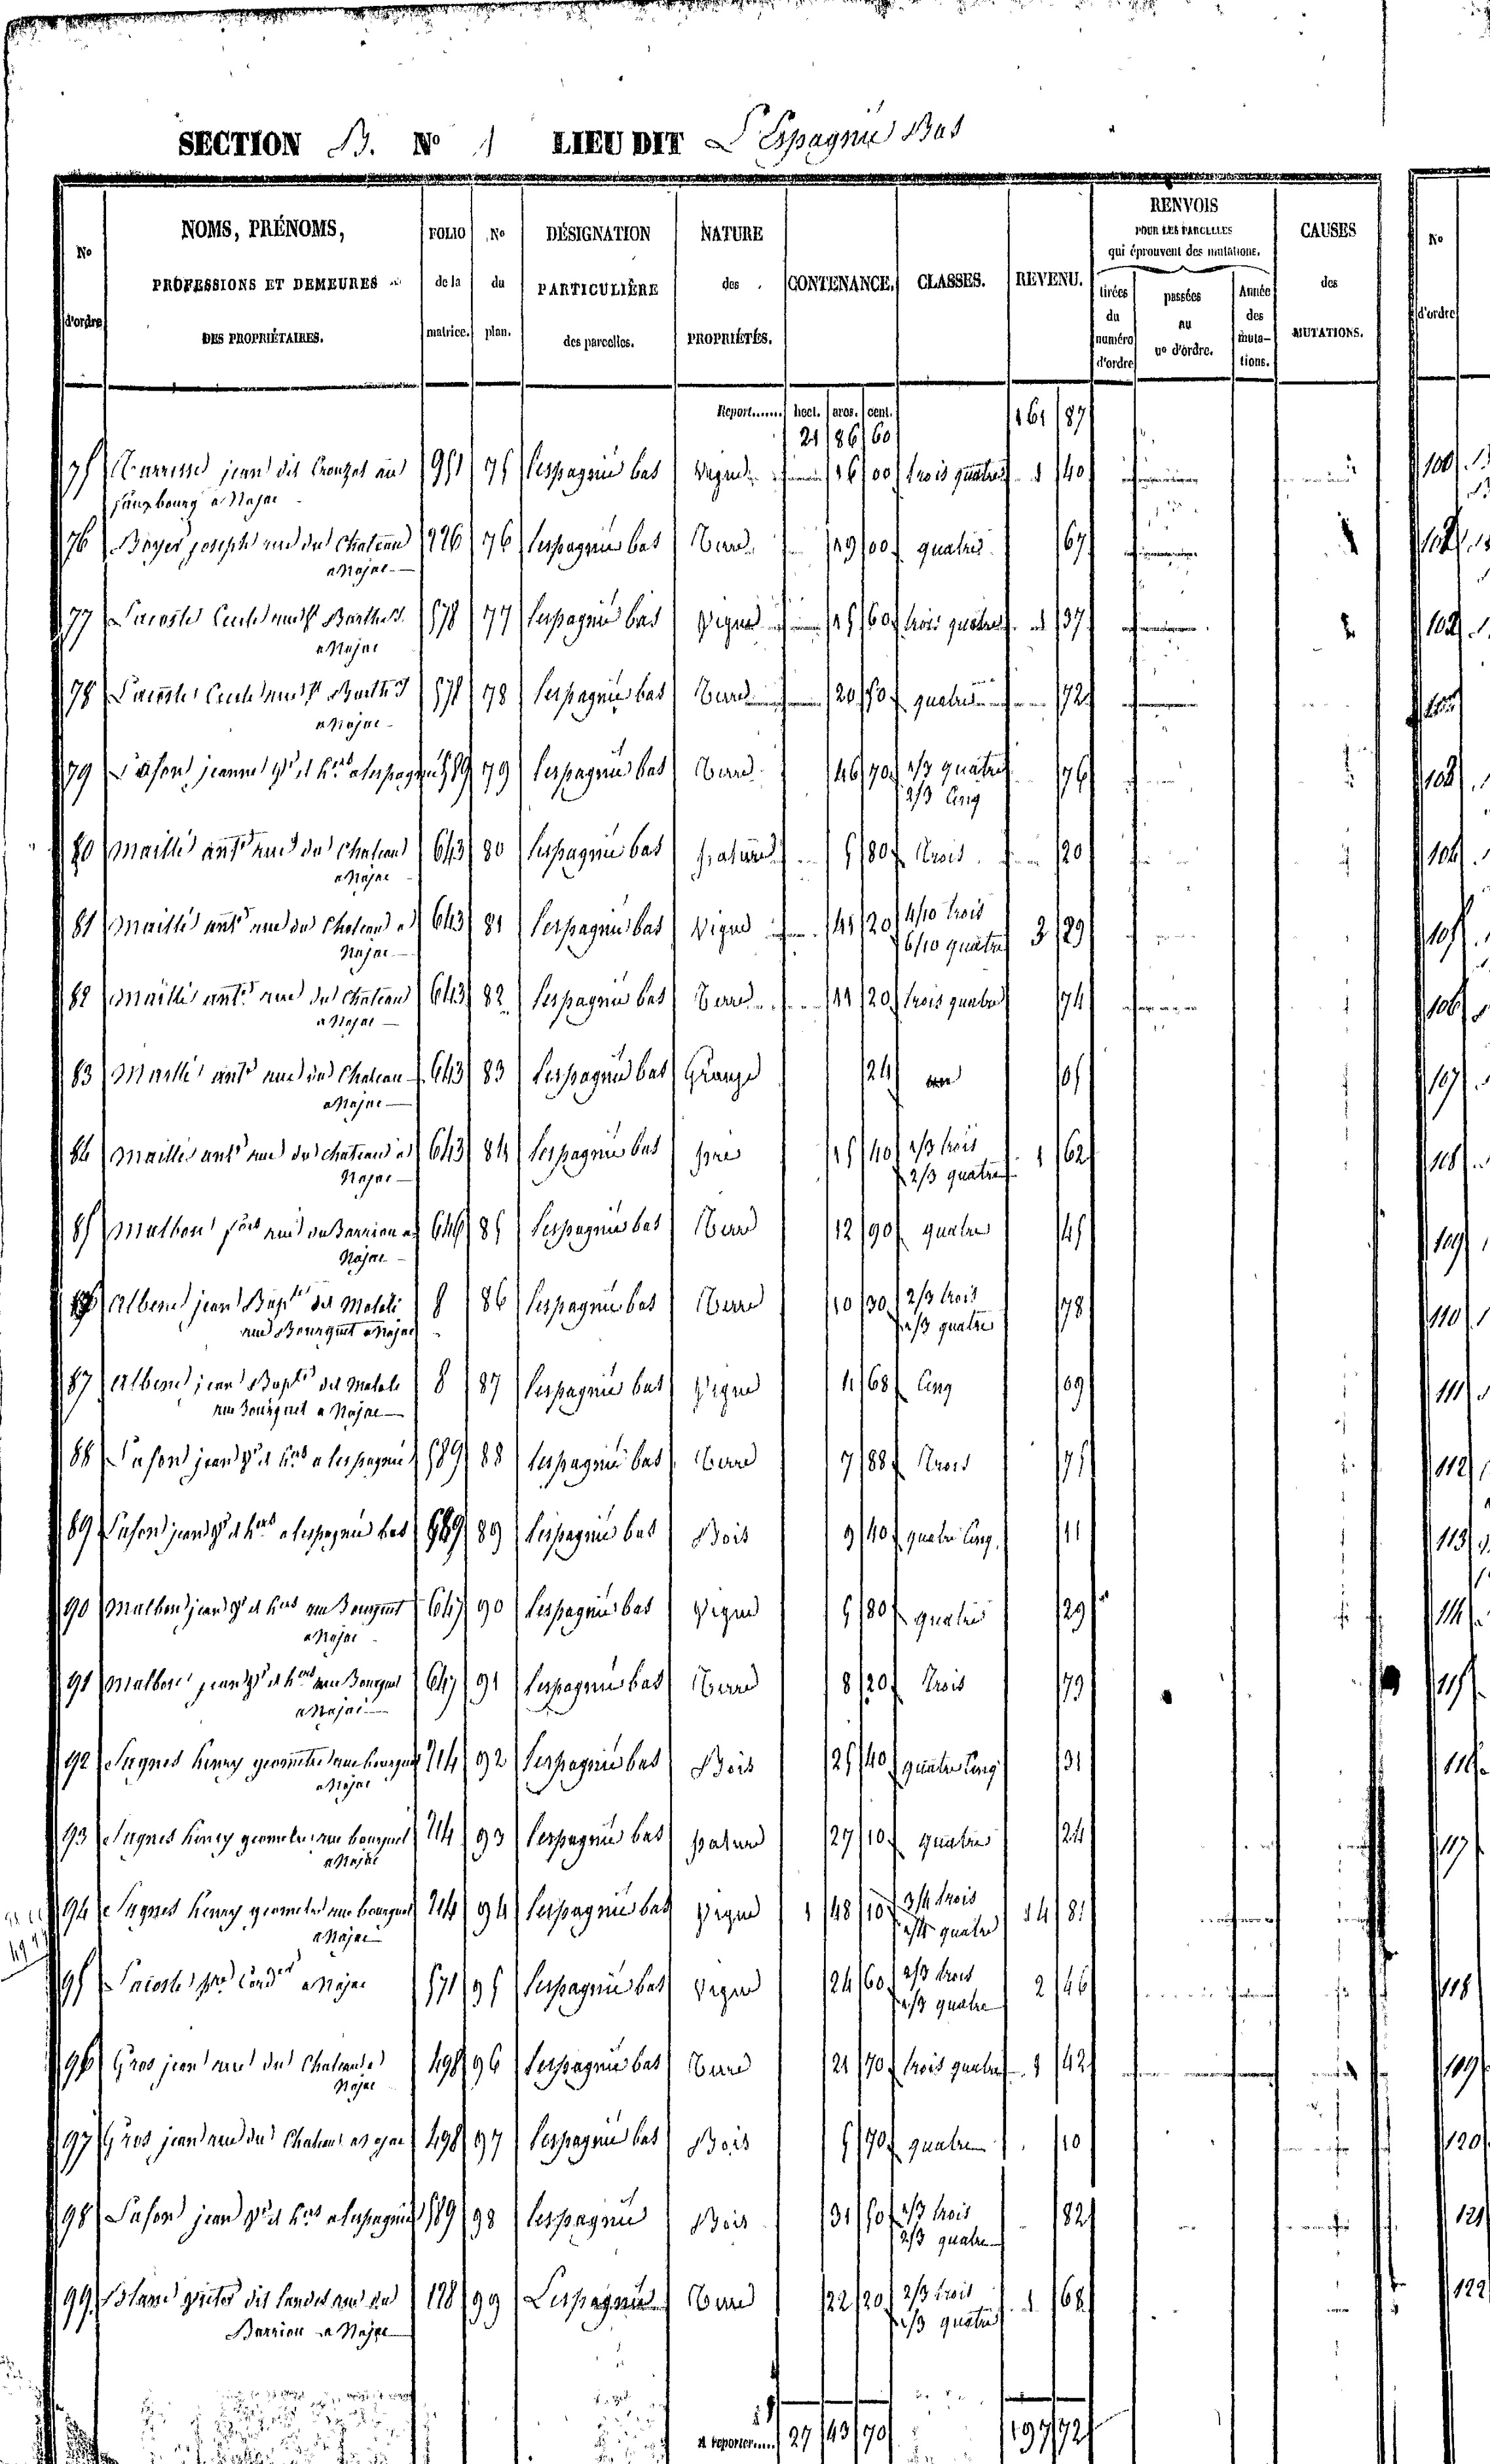 SECTION B. No 1 LIEU DIT L'Espagnié Bas
No d'ordre
NOMS, PRÉNOMS, PROFESSIONS ET DEMEURES DES PROPRIÉTAIRES.
FOLIO de la matrice.
No du plan.
DÉSIGNATION PARTICULIÈRE des parcelles.
NATURE des PROPRIÉTÉS.
CONTENANCE.
CLASSES.
REVENU.
RENVOIS POUR LES PARCELLES qui éprouvent des mutations.
tirées du numéro d'ordre
passées au no d'ordre.
Année des mutations.
CAUSES des MUTATIONS.
No d'ordre
Report....... hect. ares. cent.
21 86 60 161 87
75 jean dit Crouzet au 951 75 lespagnié bas Vigne 16 00 trois quatre 1 40 100
fauxbourg a Najac
76 Boyer joseph rue du Chateau 226 76 lespagnié bas Terre 19 00 quatre 67
a Najac
77 Lacoste 578 77 lespagnié bas Vigne 15 60 trois quatre 1 37 102
a Najac
78 Lacoste 578 78 lespagnié bas Terre 20 50 quatre 72
a Najac
79 Lafon jeanne a lespagnié 589 79 lespagnié bas Terre 46 70 1/3 quatre 76
2/3 Cinq
80 Maillé ant.e rue du Chateau 643 80 lespagnié bas pature 5 80 Trois 20 104
a Najac
81 Maillé ant.e rue du Chateau a 643 81 lespagnié bas Vigne 41 20 4/10 trois 3 29 105
Najac 6/10 quatre
82 Maillé ant.e rue du Chateau 643 82 lespagnié bas Terre 11 20 trois quatre 74 106
a Najac
83 Maillé ant.e rue du Chateau 643 83 lespagnié bas Grange 24 05 107
a Najac
84 Maillé ant.e rue du Chateau a 643 84 lespagnié bas pré 15 40 1/3 trois 1 62 108
Najac 2/3 quatre
85 Malbon rue du Barriou a 646 85 lespagnié bas Terre 12 90 quatre 45 109
Najac
Albene jean Bap.te dit Mateli 8 86 lespagnié bas Terre 10 30 2/3 trois 78 110
rue Bourguet a Najac 1/3 quatre
87 Albene jean Bap.te dit Mateli 8 87 lespagnié bas Vigne 4 68 Cinq 09 111
rue Bourguet a Najac
88 Lafon jean a lespagnié 589 88 lespagnié bas Terre 7 88 Trois 75 112
89 Lafon jean a lespagnié bas 589 89 lespagnié bas Bois 9 40 quatre Cinq 11 113
90 Malbon jean rue Bourguet 647 90 lespagnié bas Vigne 5 80 quatre 29 114
a Najac
91 Malbon jean rue Bourguet 647 91 lespagnié bas Terre 8 20 Trois 79 115
a Najac
92 Sagnes henry geometre rue bourguet 714 92 lespagnié bas Bois 25 40 quatre Cinq 31 116
a Najac
93 Sagnes henry geometre rue bourguet 714 93 lespagnié bas pature 27 10 quatre 24 117
a Najac
94 Sagnes henry geometre rue bourguet 714 94 lespagnié bas Vigne 1 48 10 3/4 trois 14 81
a Najac 1/4 quatre
95 Lacoste a Najac 571 95 lespagnié bas Vigne 24 60 2/3 trois 2 46 118
1/3 quatre
96 Gros jean rue du Chateau a 498 96 lespagnié bas Terre 21 70 trois quatre 1 42 119
Najac
97 Gros jean rue du Chateau a Najac 498 97 lespagnié bas Bois 5 70 quatre 10 120
98 Lafon jean a lespagnié 589 98 lespagnié Bois 31 50 1/3 trois 82 121
2/3 quatre
99 Blanc victor dit landes rue du 128 99 Lespagnié Terre 22 20 2/3 trois 1 68 122
Barriou a Najac 1/3 quatre
A reporter..... 27 43 70 197 72